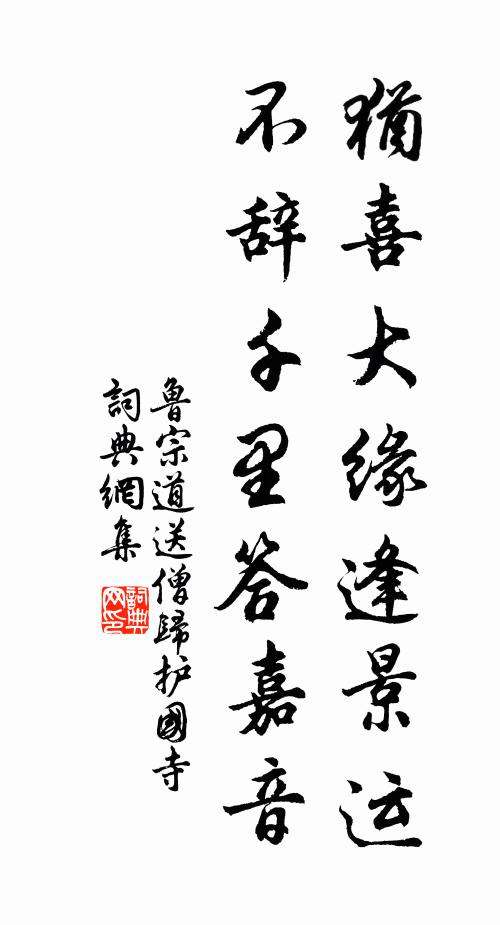 猶喜大缘逢景运
不辞千里答嘉音
鲁宗道送僧歸护國寺
詞典網集
詞典网印